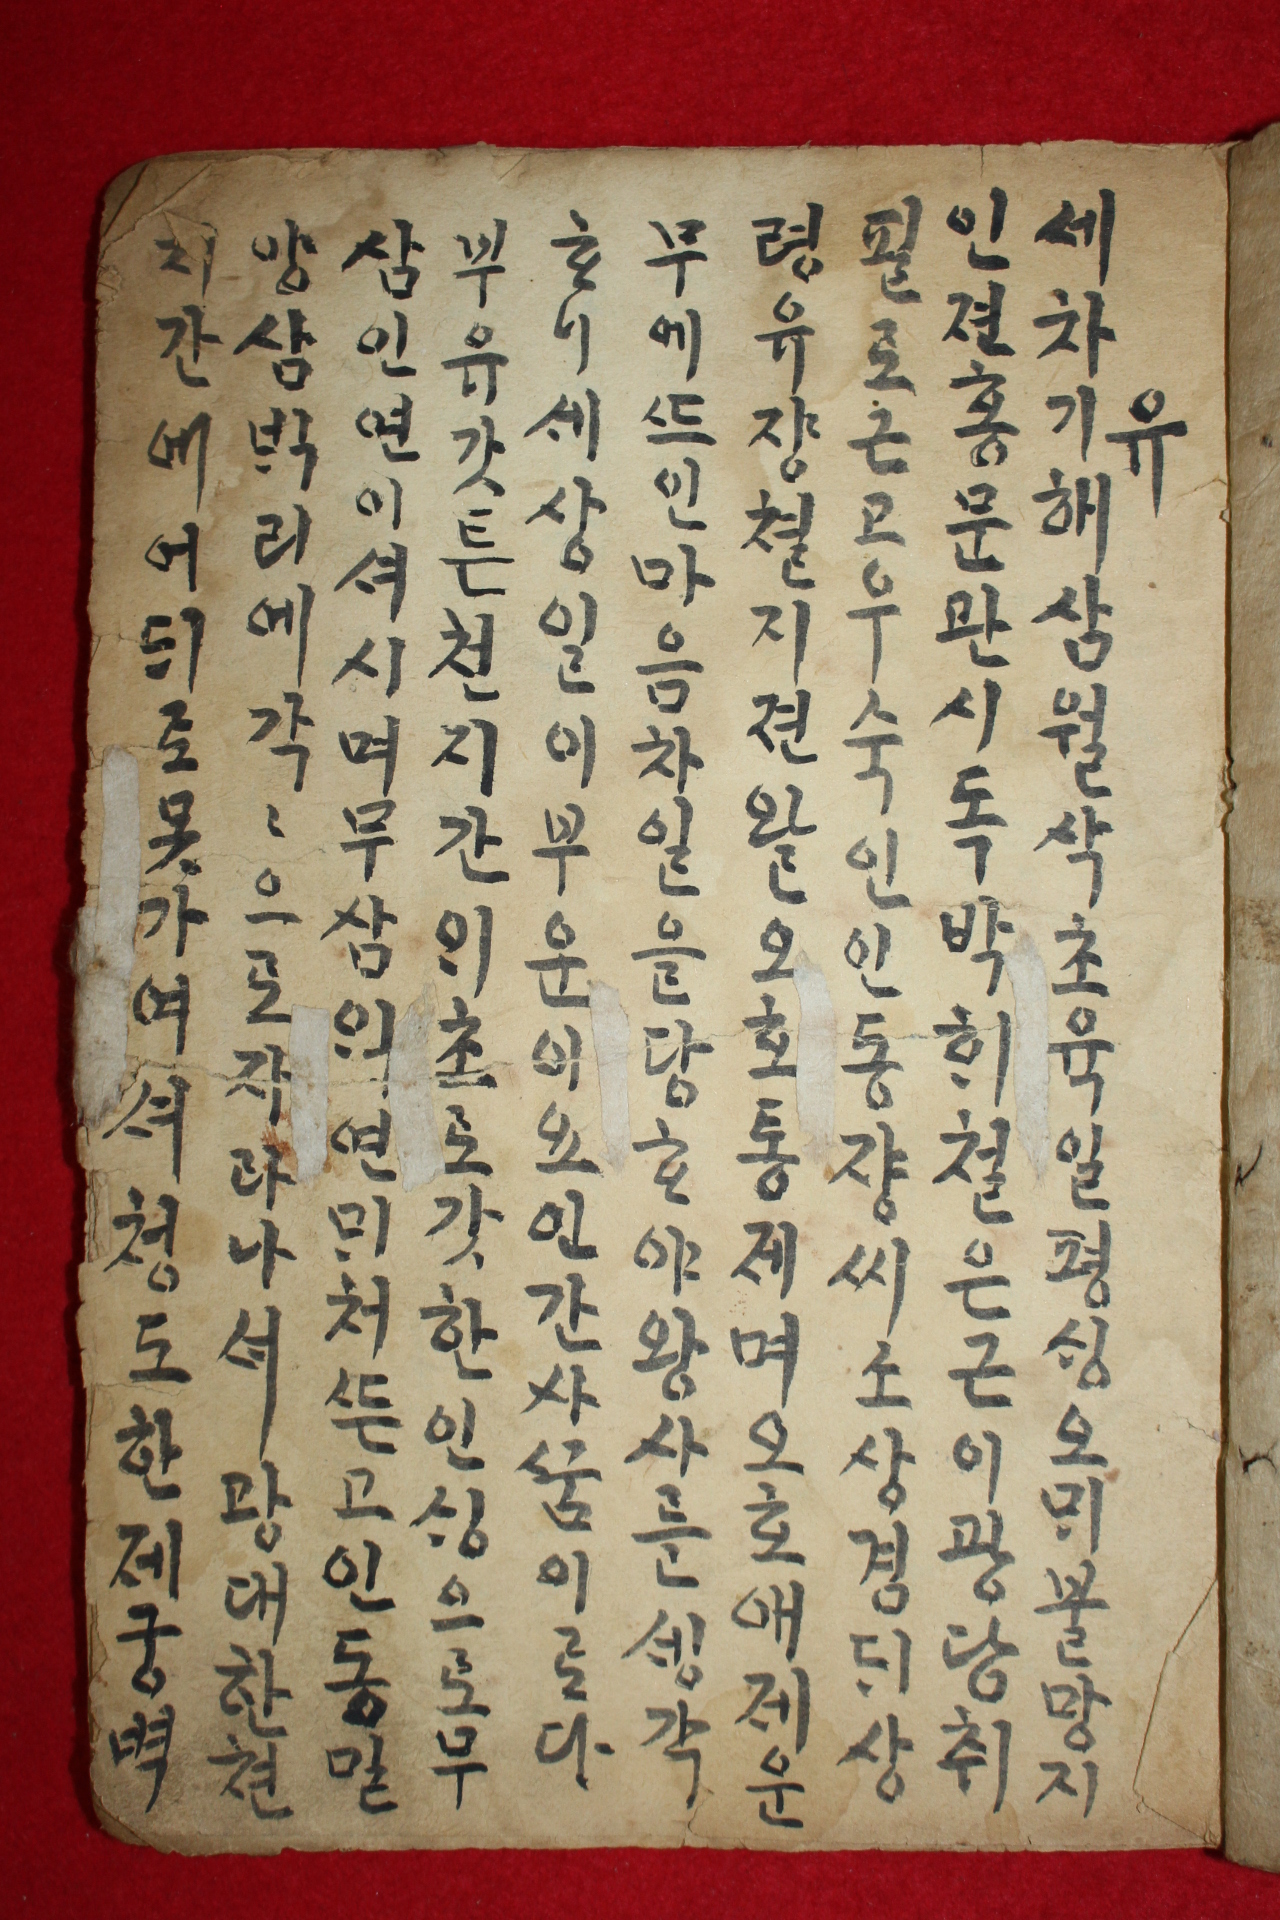 유
세차기해삼월삭초육일평싱오ᄆᆡ불망지
인젼홍문관시독박희철은근이광당취
필로근고우숙인인동쟝씨소상경ᄃᆡ상
령유쟝쳘지젼왈오호통제며오호애제운
무에뜨인마음차일을당ᄒᆞ야왕사를ᄉᆡᆼ각
ᄒᆞ니세상일이부운이요인간사꿈이로다
부유갓튼천지간의초로갓한인ᄉᆡᆼ으로무
삼인연이셔시며무삼의연ᄆᆡ쳐뜬고인동말
양삼박리에각〻으로자라나셔광대한쳔
지간에어ᄃᆡ로못가여셔청도한제궁벽